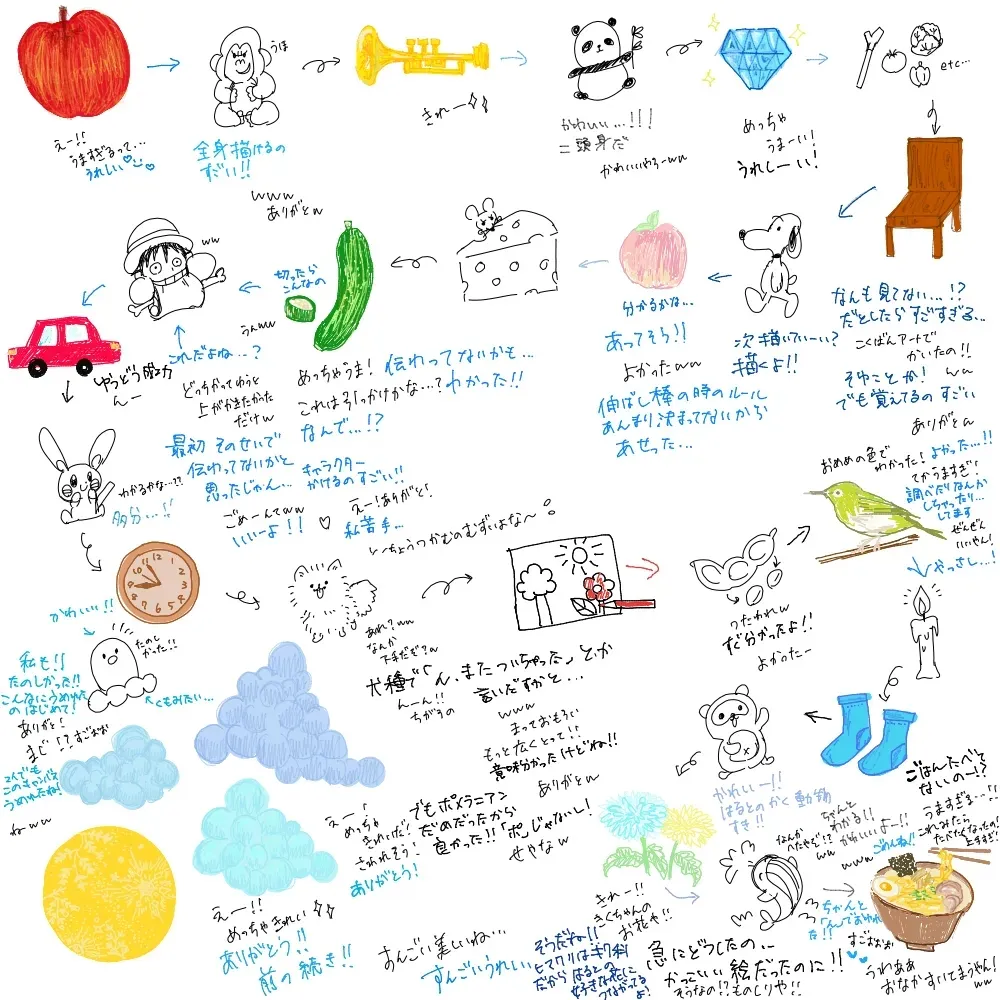 えー!!
うますぎるって...
うれしい♡
うほ
全身描けるの
すごい!!
www
ありがとw
きれー
かわいい...!!!
二頭身だ
かわいいやろーww
めっちゃ
うまーい!
うれしーい!
etc...
なんも見てない...!?
だとしたらすごすぎる...
こくばんアートで
かいたの!!
ww
そゆことか!
でも覚えてるの すごい
ありがとw
次描いていーい?
描くよ!!
分かるかな...
あってそう!!
よかったww
伸ばし棒の時のルール
あんまり決まってないから
あせった...
切ったら
こんなの
うんww
めっちゃうま!
伝わってないかも...
これは引っかけかな...?
わかった!!
なんで...!?
キャラクター
かけるのすごい!!
えー!ありがと!
私苦手...
とくちょうつかむのむずいよな〜
ww
これだよね...?
どっちかってゆうと
上がかきたかった
だけw
最初 そのせいで
伝わってないかと
思ったじゃん...
ごめーんてww
いいーよ!!
ゆうどう成功
んー
わかるかな...??
多分...!!
12 1 2 3 4 5 6 7 8 9 10 11
かわいい!!
たのし
かった!!
私も!!
たのしかった!!
こんなにうめれた
のはじめて!
くもみたい...
ありがと!
まじ!?すごおお
2人でも
このキャンバス
うめれたね!
ねww
あれ?ww
なんか
下手だぞ?w
犬種で「ん、またついちゃった」とか
言いだすかと...
んーん!!
ちがうの
www
まっておもろい
もっと広くとって!!
意味分かったけどね!!
ありがとw
でもポメラニアン
だめだったから
良かった!!「ポ」じゃないし!
せやなw
つたわれw
すぐ分かったよ!!
よかったー
おめめの色で
わかった!
よかった...!!
てかうますぎ!
調べたりなんか
しちゃったり...
してます
ぜんぜん
いいやん!
やっさし...!
かわいいー!!
はるとのかく動物
すき!!
ごはんたべて
ないのー!?
うますぎる...!!
これみたら
たべたくなったの!
上手すぎ!
ちゃんと
わかる!!
かわいいよー!!
www
ごめんね!!
なんか
へたやぞ!?
ww
ちゃんと
「ん」でおわれ
た!?
すごおお
うわぁぁ
おなかすいてまうやん!
ww
急にどうしたの...
かっこいい絵だったのに!!
そうなの!?ものしりや!!
きれー!!
きくちゃんの
お花や!!
そうだね!!
ヒマワリはキク科
だからはるとの
好きな花に
つながってる
よ!
えー!!
めっちゃきれい
ありがとう!!
前の続き!!
すんごい美しいね...
すんごいうれしい
ありがとう!